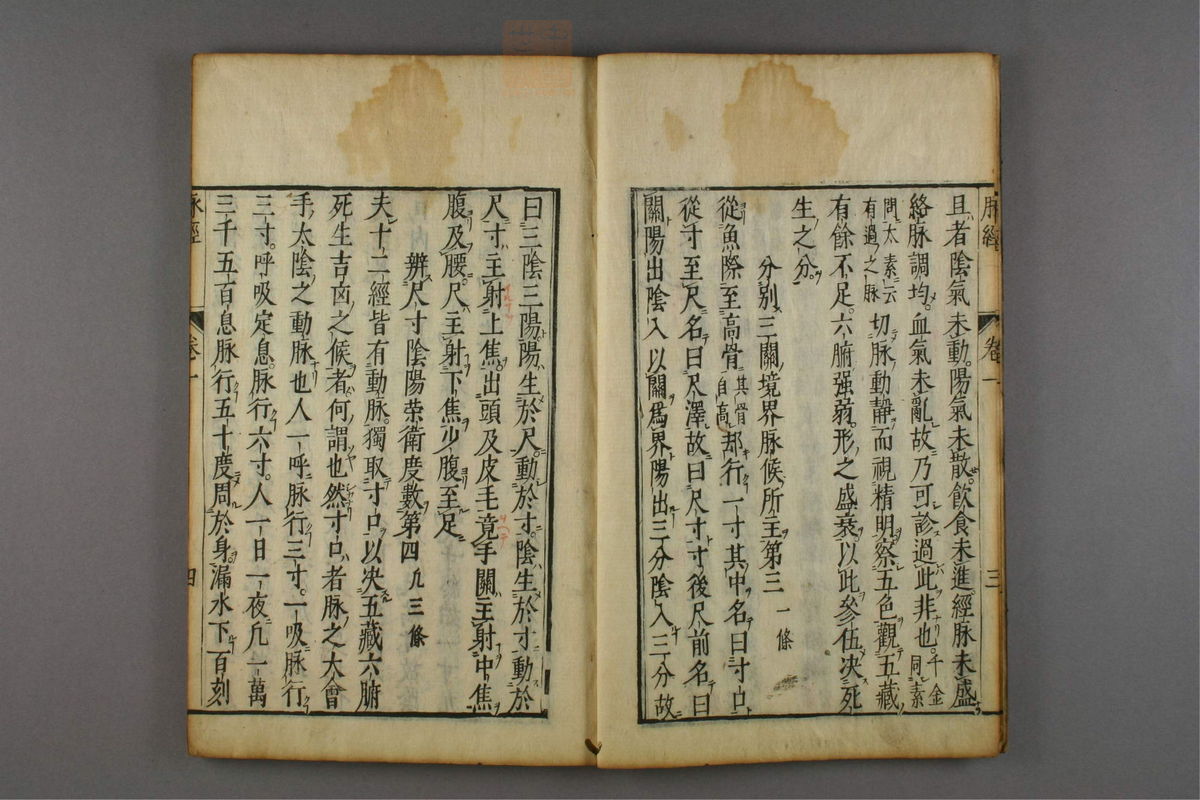 脉經 卷一 三
且者陰氣未動陽氣未散飲食未進經脉未盛
絡脉調均血氣未亂故乃可診過此非也千金同素
問太素云有過之脉切脉動靜而視精明察五色觀五藏
有餘不足六腑强弱形之盛衰以此參伍决死
生之分
分別三關境界脉候所主第三 一條
從魚際至高骨其骨自高却行一寸其中名曰寸口
從寸至尺名曰尺澤故曰尺寸寸後尺前名曰
關陽出陰入以關爲界陽出三分陰入三分故
曰三陰三陽陽生於尺動於寸陰生於寸動於
尺寸主射上焦出頭及皮毛竟手關主射中焦
腹及腰尺主射下焦少腹至足
辨尺寸陰陽荣衛度數第四 凢三條
夫十二經皆有動脉獨取寸口以决五藏六腑
死生吉凶之候者何謂也然寸口者脉之大會
手太陰之動脉也人一呼脉行三寸一吸脉行
三寸呼吸定息脉行六寸人一日一夜凢一萬
三千五百息脉行五十度周於身漏水下百刻
脉經 卷一 四